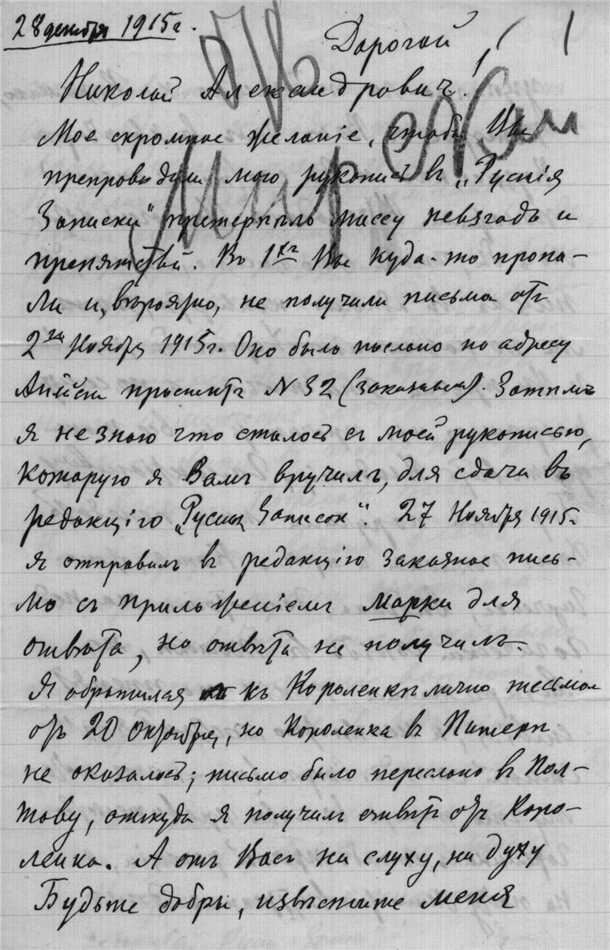 28 декабря 1915 г.
Дорогой
Николай Александрович!
Мое скромное желаніе, чтобы Вы
препроводили мою рукопись въ „Русскія
Записки" претерпѣло массу невзгодъ и
препятствій. Во 1хъ Вы куда-то пропа-
ли и, вѣроятно, не получили письма отъ
2го Ноября 1915 г. Оно было послано по адресу
проспектъ № 32 (заказным). Затѣмъ
я не знаю что сталось съ моей рукописью,
которую я Вамъ вручилъ, для сдачи въ
редакцію „Русских Записок". 27 Ноября 1915 г.
я отправилъ въ редакцію заказное пись-
мо съ приложеніемъ марки для
отвѣта, но отвѣта не получилъ.
Я обратился къ Короленкѣ лично письмом
отъ 20 Октября, но Короленка в Питерѣ
не оказалось; письмо было переслано в Пол-
таву, откуда я получилъ отвѣтъ отъ Коро-
ленка. А отъ Васъ ни слуху, ни духу
Будьте добры, извѣстите меня